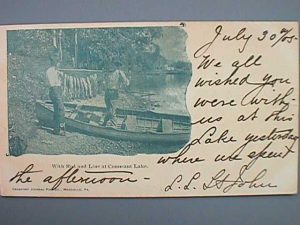 July 30/05.
We all
wished you
were with
us at this
Lake yesterday
where we spent
the afternoon-
L. L. St John
With Rod and Line at Conneaut Lake.